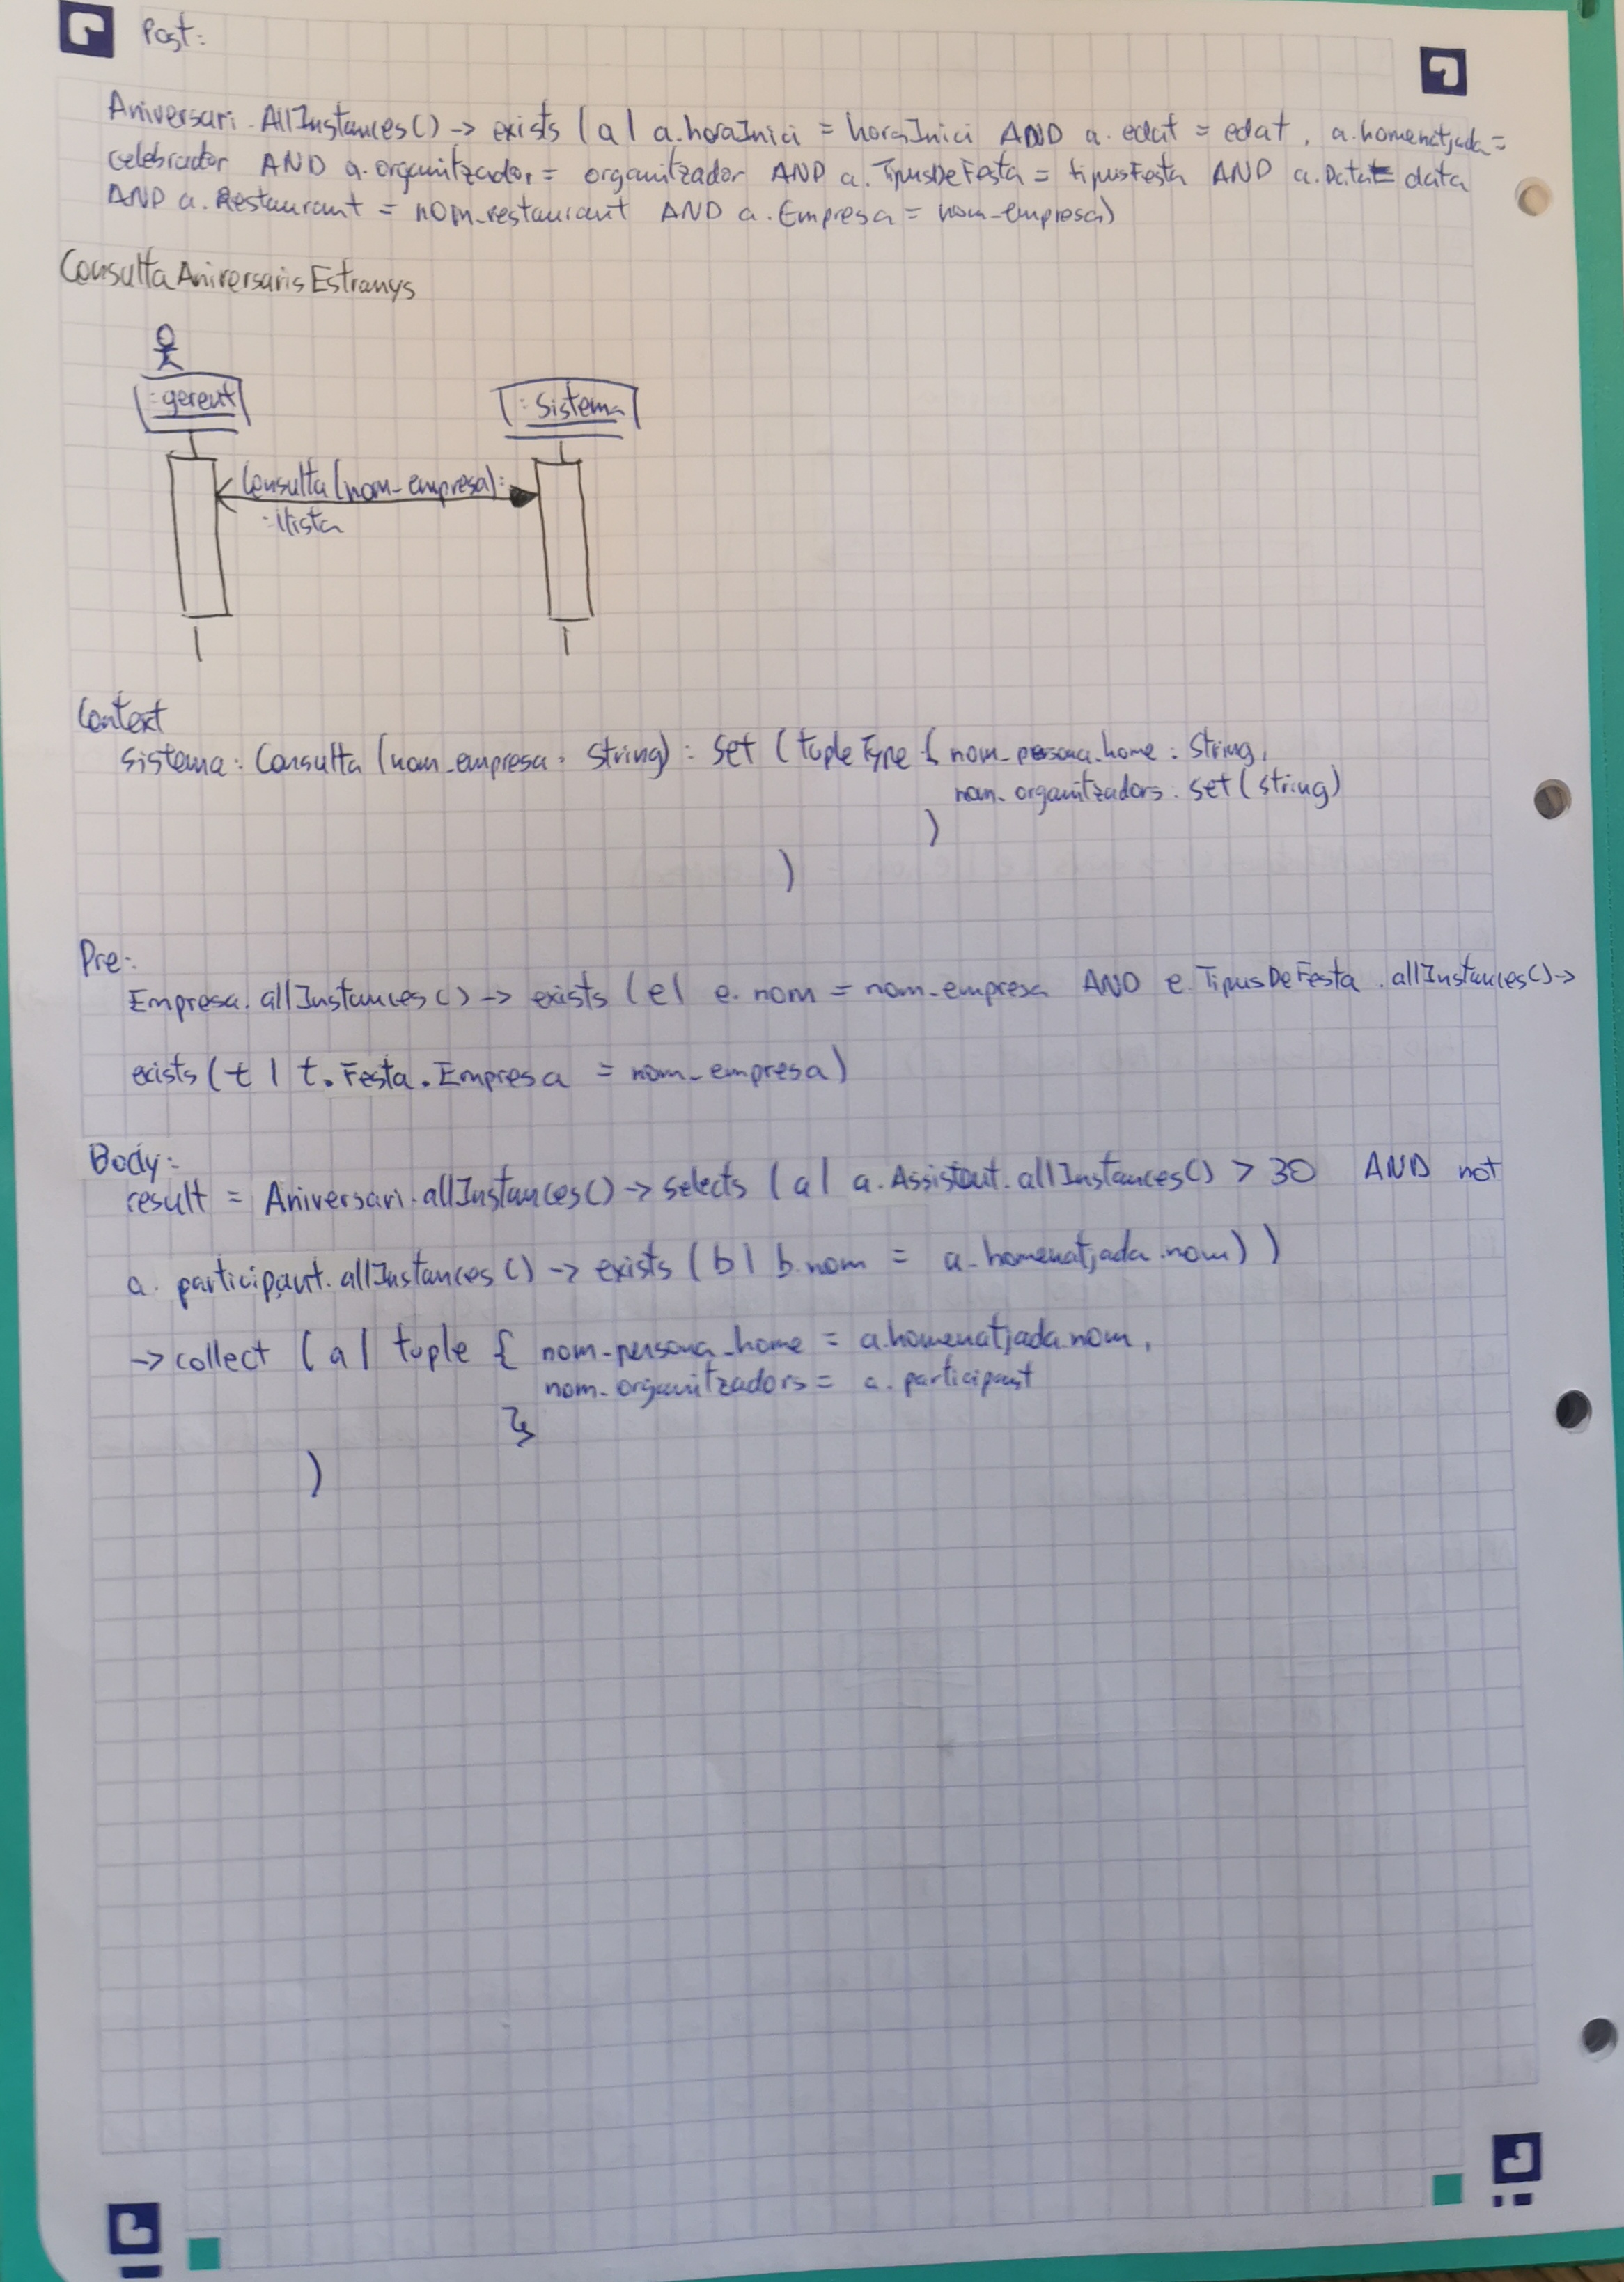 Post:
Aniversari.AllInstances() -> exists (a | a.horaInici = horaInici AND a.edat = edat, a.homenatjada =
celebrador AND a.organitzador = organitzador AND a.TipusDeFesta = tipusFesta AND a.Data = data
AND a.Restaurant = nom_restaurant AND a.Empresa = nom_empresa)
Consulta Aniversaris Estranys
:gerent
:Sistema
Consulta(nom_empresa):
:llista
Context
Sistema: Consulta (nom_empresa: String): Set (tupleType { nom_persona_home: String,
nom_organitzadors: set(string)
)
)
Pre:
Empresa.allInstances() -> exists (e | e.nom = nom_empresa AND e.TipusDeFesta.allInstances() ->
exists (t | t.Festa.Empresa = nom_empresa)
Body:
result = Aniversari.allInstances() -> selects (a | a.Assistent.allInstances() > 30 AND not
a.participant.allInstances() -> exists (b | b.nom = a.homenatjada.nom))
-> collect (a | tuple { nom_persona_home = a.homenatjada.nom,
nom_organitzadors = a.participant
}
)